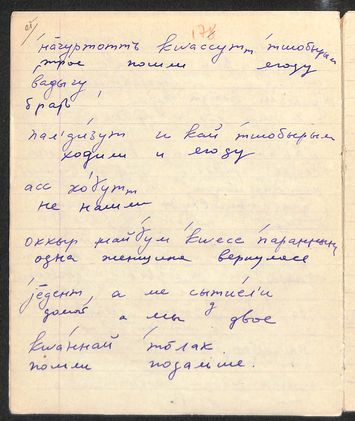 178
на́гуртоттъ квассутт тшобырым
трое пошли ягоду
вадыгу
брать
палди́зут и кай тшобырым
ходили и ягоду
асс хо́бутт
не нашли
оккыр майгум квесс паранный
одна женщина вернулась
је̄дент а ме сыти́ели
домой а мы двое
ква́ннай тблак
пошли подальше.